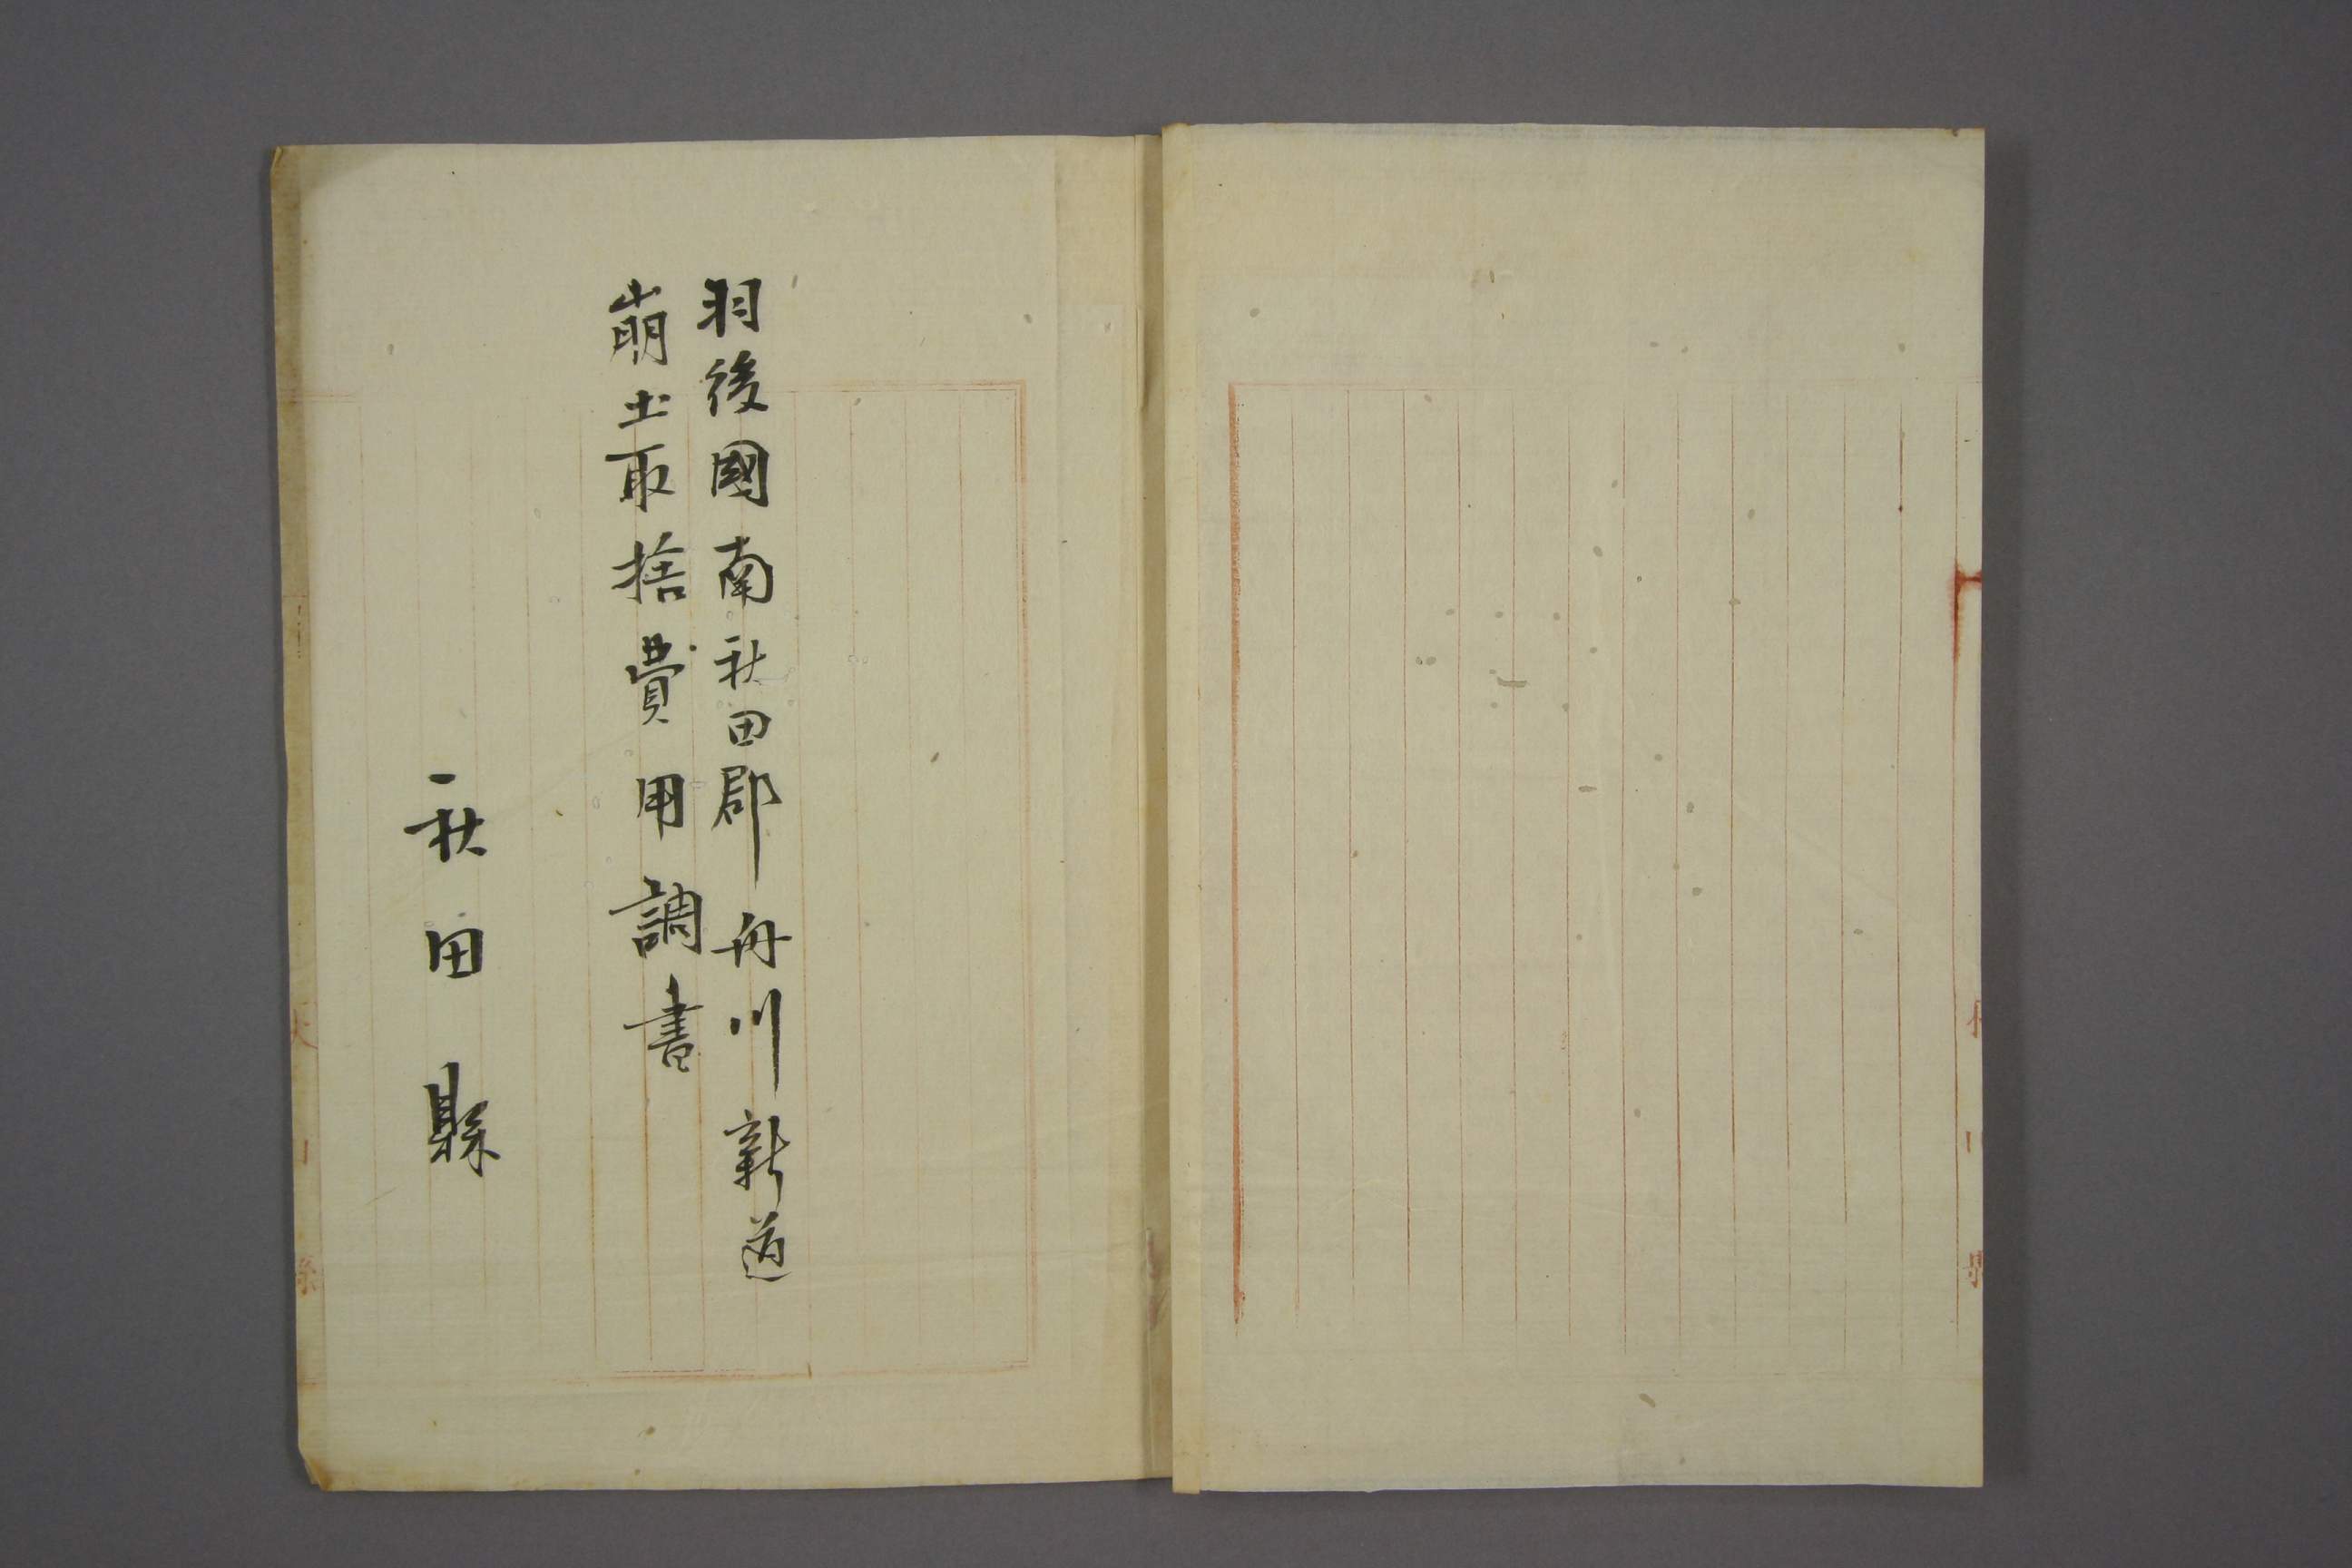 羽後國南秋田郡舟川新道
崩土取捨費用調書
秋田縣